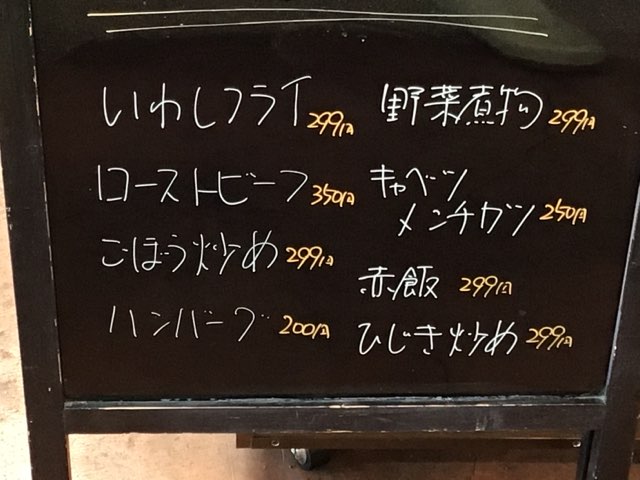 いわしフライ 299円
ローストビーフ 350円
ごぼう炒め 299円
ハンバーグ 200円
野菜煮物 299円
キャベツ
メンチカツ 250円
赤飯 299円
ひじき炒め 299円